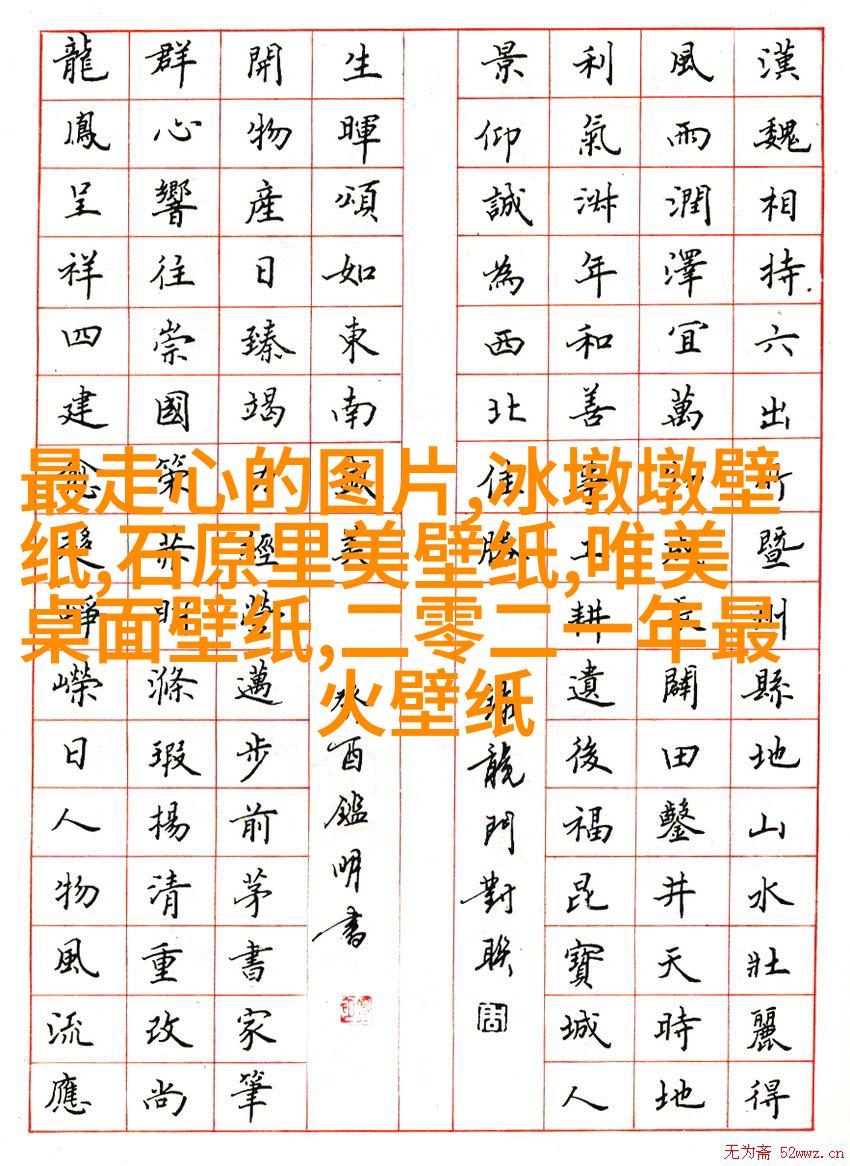 漢魏相持六出暨州縣地山水壯麗得
風雨潤澤宜萬闢田鑿井天時地
利氣年和善事工耕遺後福昆寶城人
景仰誠為西北佳勝
龍門對聯
生暉頌如東南美
癸酉鑑明書
開物產日臻竭力經營邁步前茅書家筆
群心響往崇國策明滌瑕揚清重改尚
龍鳳呈祥四建愈崢嶸日人物風流應
最走心的图片,冰墩墩壁
纸,石原里美壁纸,唯美
桌面壁纸,二零二一年最
火壁纸
无为斋 52wwz.cn